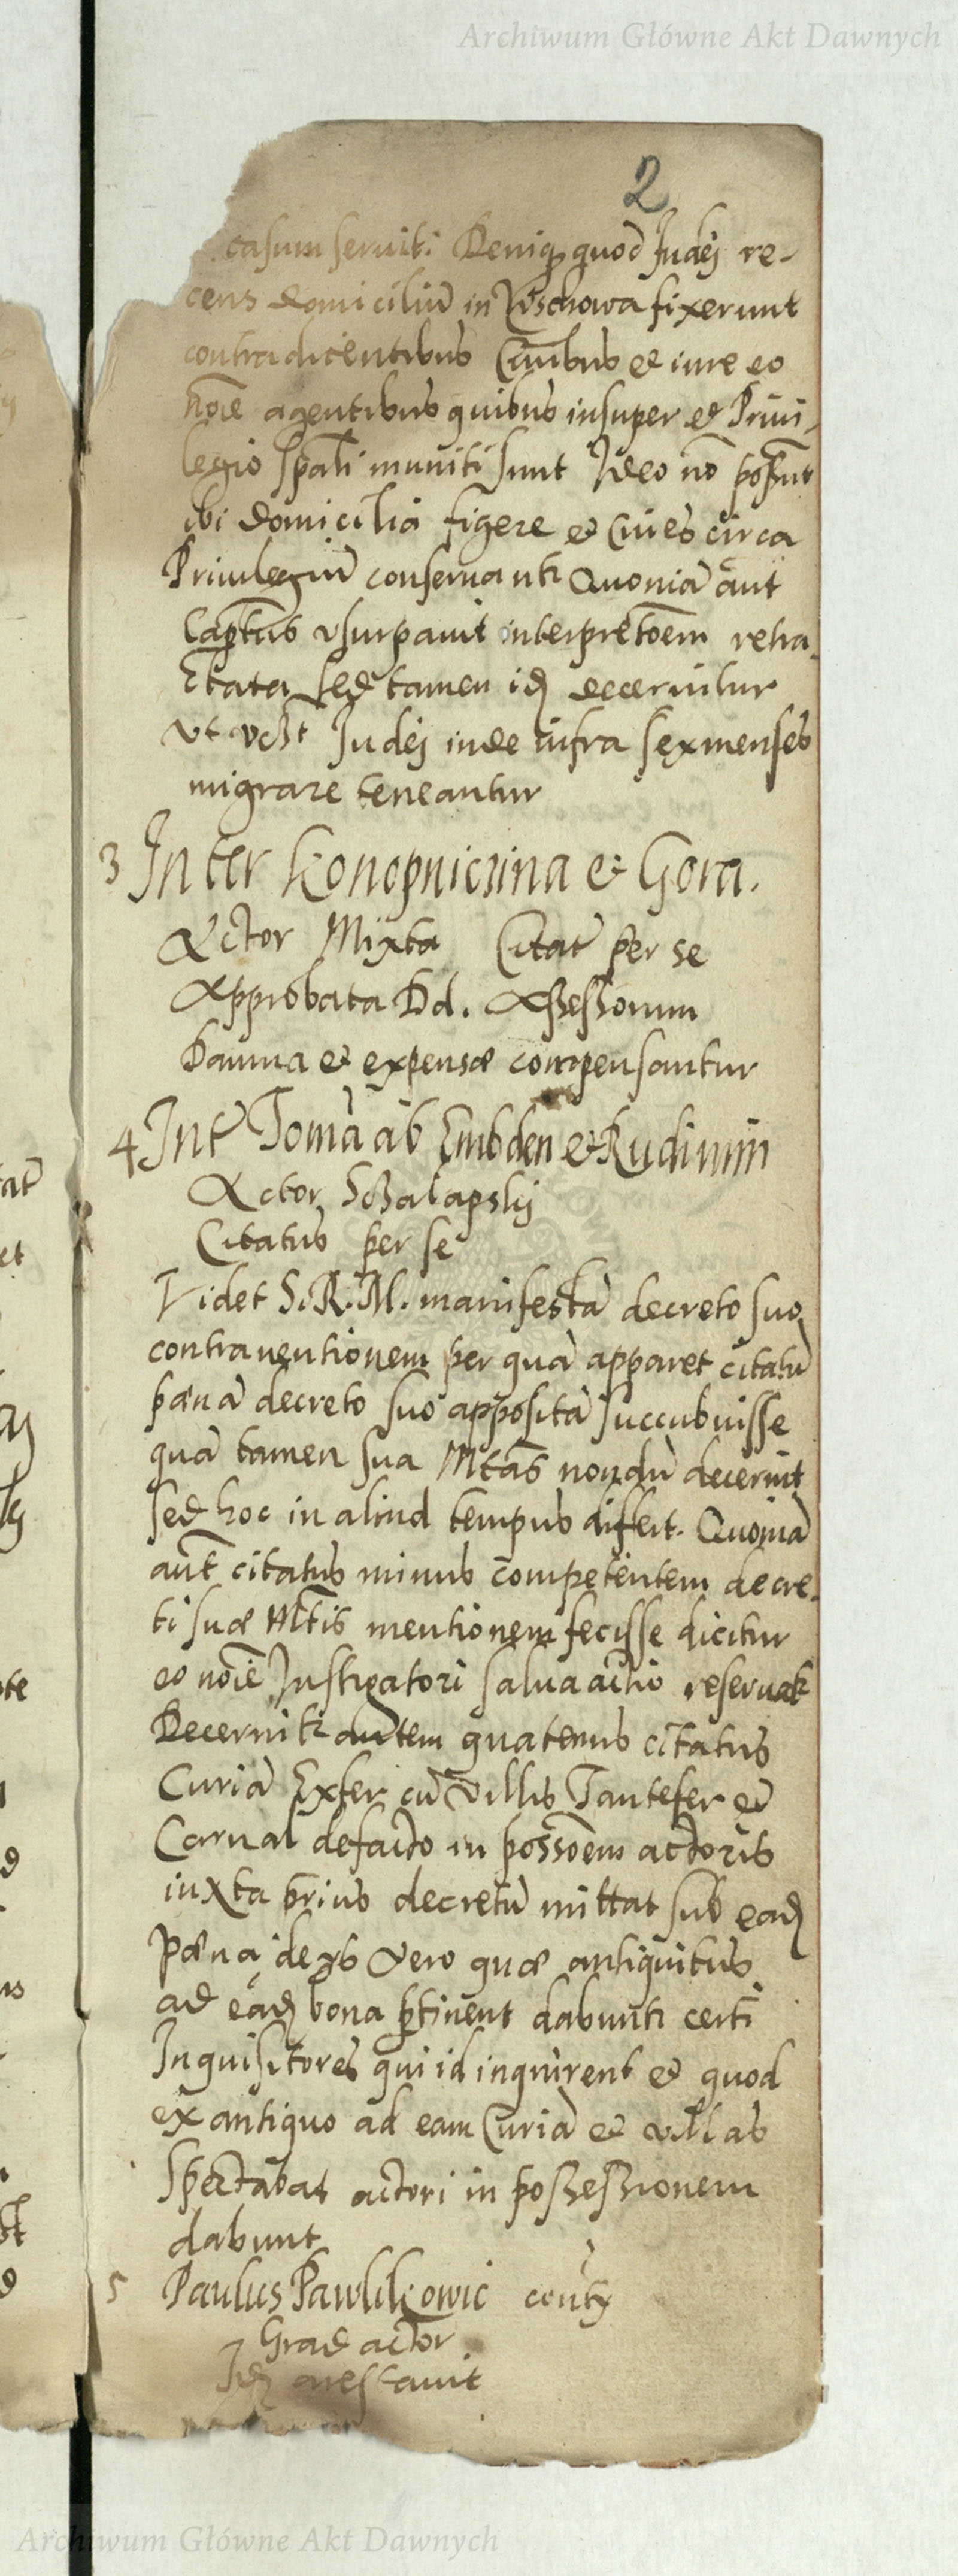 Archiwum Główne Akt Dawnych
2
casum seruit. Deniq quod Judej re-
cens domiciliũ in Wschowa fixerunt
contradicentibus Ciuibus et iure eo
noĩe agentibus quibus insuper et Priui-
legio spãli muniti sunt Ideo nõ possunt
ibi domicilia figere et Ciues circa
Priuilegiũ conseruantr Quoniã aũt
Captũs vsurpauit interpretõem retra-
ctata sed tamen idẽ decernitur
vt Judej inde infra sex menses
migrare teneantur
3 Inter Konopniczina et Gora.
Actor Mixta Citat̃ per se
Approbata Dd. Assessorum
Damna et expensæ compensantur
4 Int̃ Tomã ab Embden et Rudimin
Actor
Citatus per se
Videt S. R. M. manifestã decreto suo
contrauentionem per quã apparet citatũ
pœnã decreto suo appositã succubuisse
quã tamen sua Mtãs nondũ decernit
sed hoc in aliud tempus differt. Quoniã
aũt citatus minus competentem decre-
ti suæ Mtĩs mentionem fecisse dicitur
eo noĩe Instigatori salua actio reseruatr
Decernitr autem quatenus citatus
Curiã Exfer cũ villis Tantefer et
Carnal defacto in possõem actoris
iuxta prius decretũ mittat sub eadẽ
Pœna, de ijs vero quæ antiquitus
ad eadẽ bona ptinent dabuntr certi
Inquisitores qui id inquirent et quod
ex antiquo ad eam Curiã et villas
Spectabat actori in possessionem
dabunt
5 Paulus Pawlikowic contẽ
Grad actor
Idẽ arestauit
Archiwum Główne Akt Dawnych